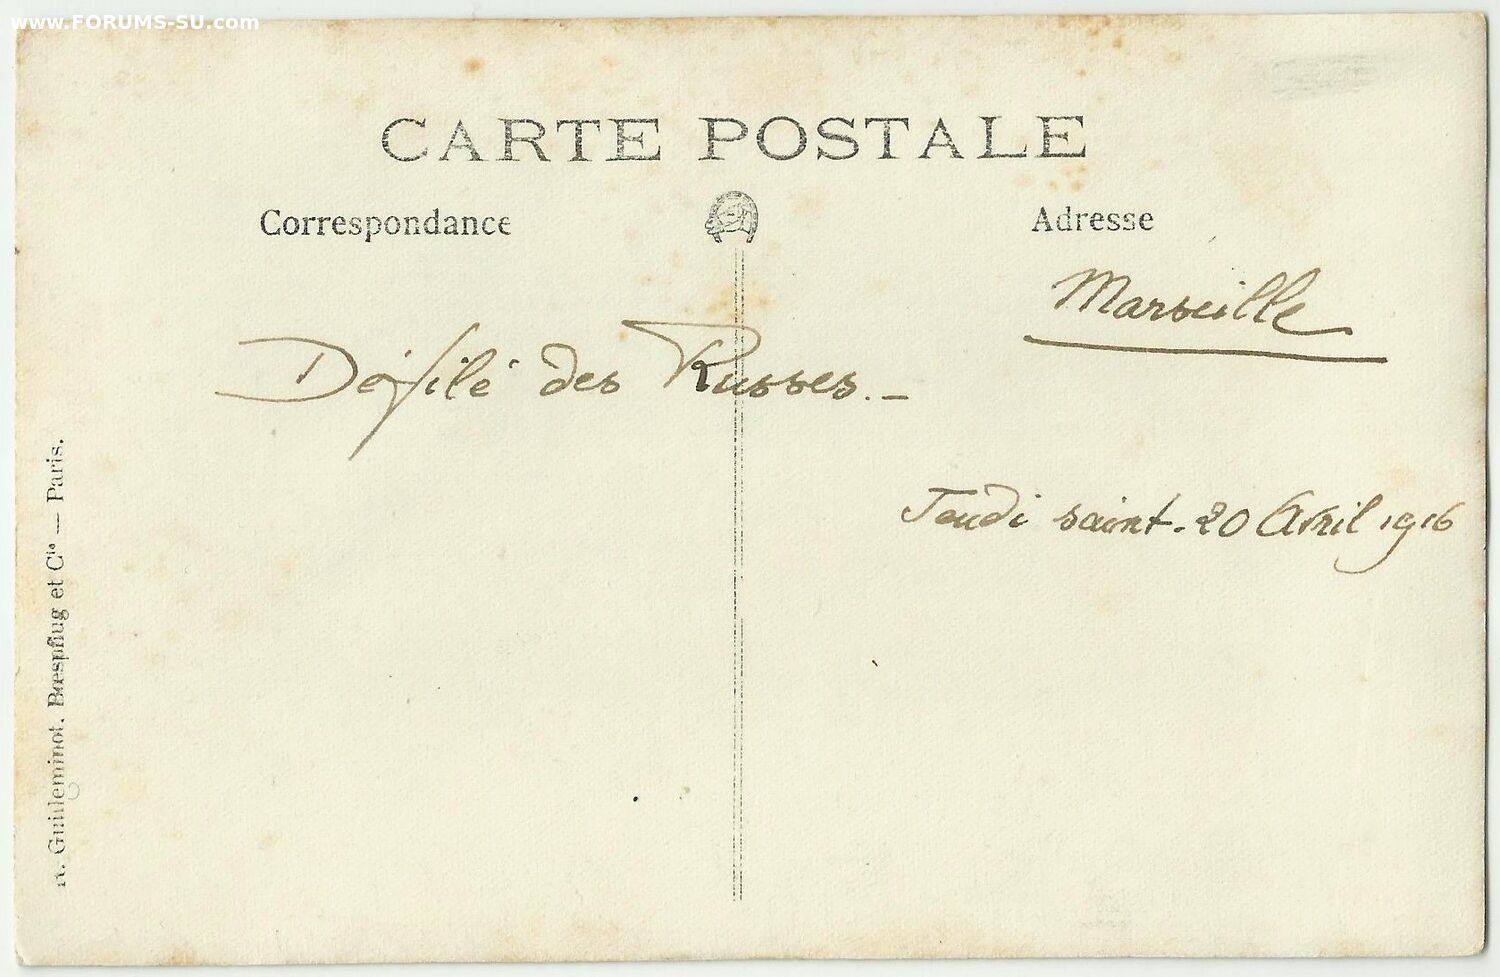 www.FORUMS-SU.com
CARTE POSTALE
Correspondance
Adresse
Marseille
Défilé des Russes. –
Jeudi saint. 20 Avril 1916
R. Guilleminot. Bœspflug et Cie — Paris.